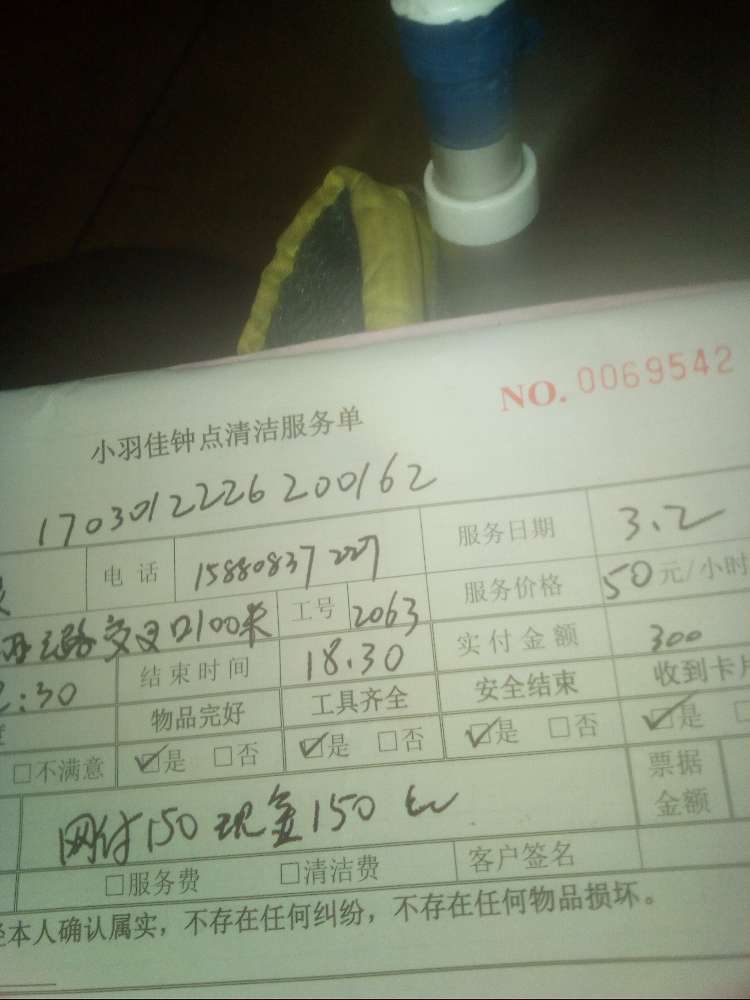 NO. 0069542
小羽佳钟点清洁服务单
1703012226200162
电话 15880837227 服务日期 3.2
交叉口100米 工号 2063 服务价格 50元/小时
:30 结束时间 18.30 实付金额 300
物品完好 工具齐全 安全结束 收到卡
□不满意 ☑是 □否 ☑是 □否 ☑是 □否 ☑是
网付150现金150元 票据金额
□服务费 □清洁费 客户签名
本人确认属实，不存在任何纠纷，不存在任何物品损坏。